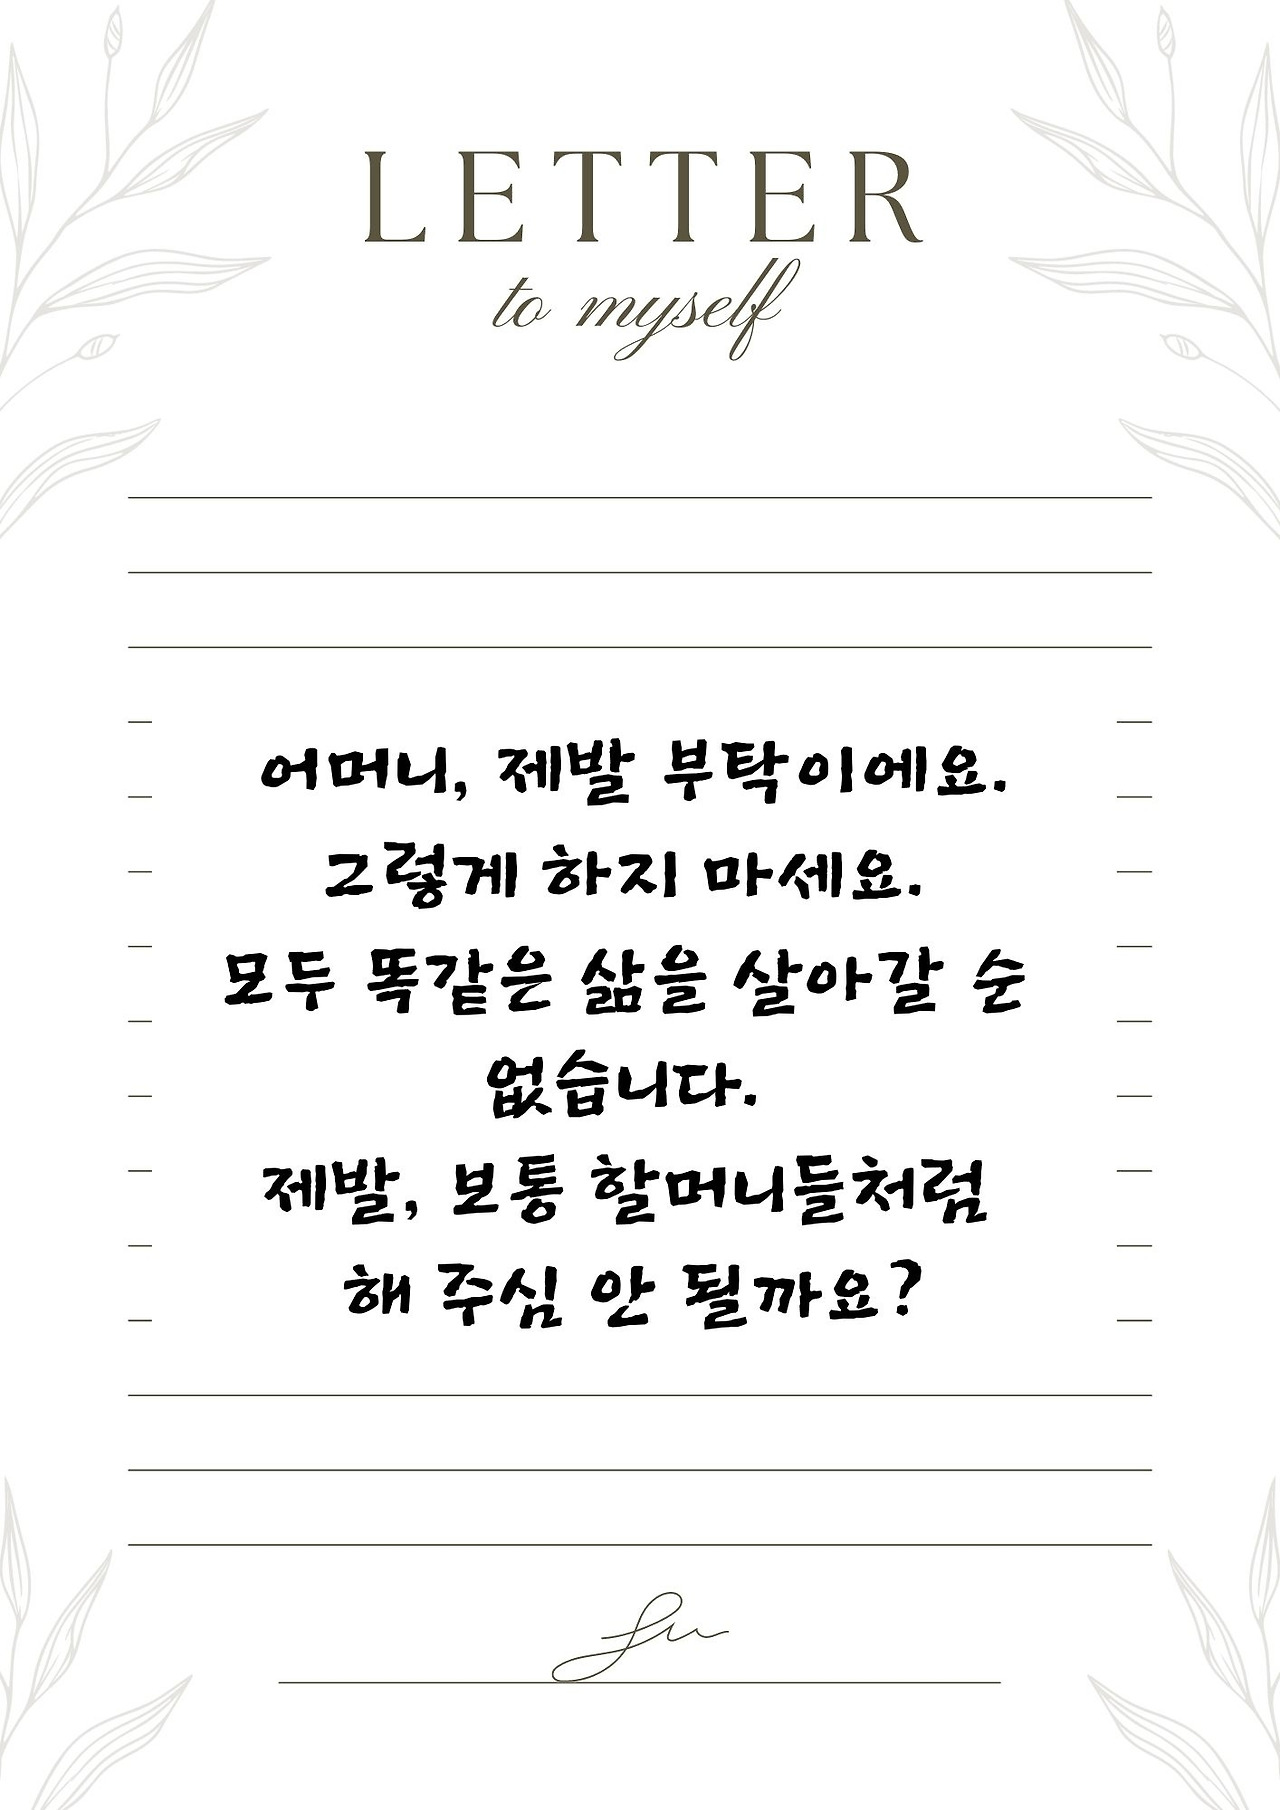 LETTER
to myself
어머니, 제발 부탁이에요.
그렇게 하지 마세요.
모두 똑같은 삶을 살아갈 순
없습니다.
제발, 보통 할머니들처럼
해 주심 안 될까요?